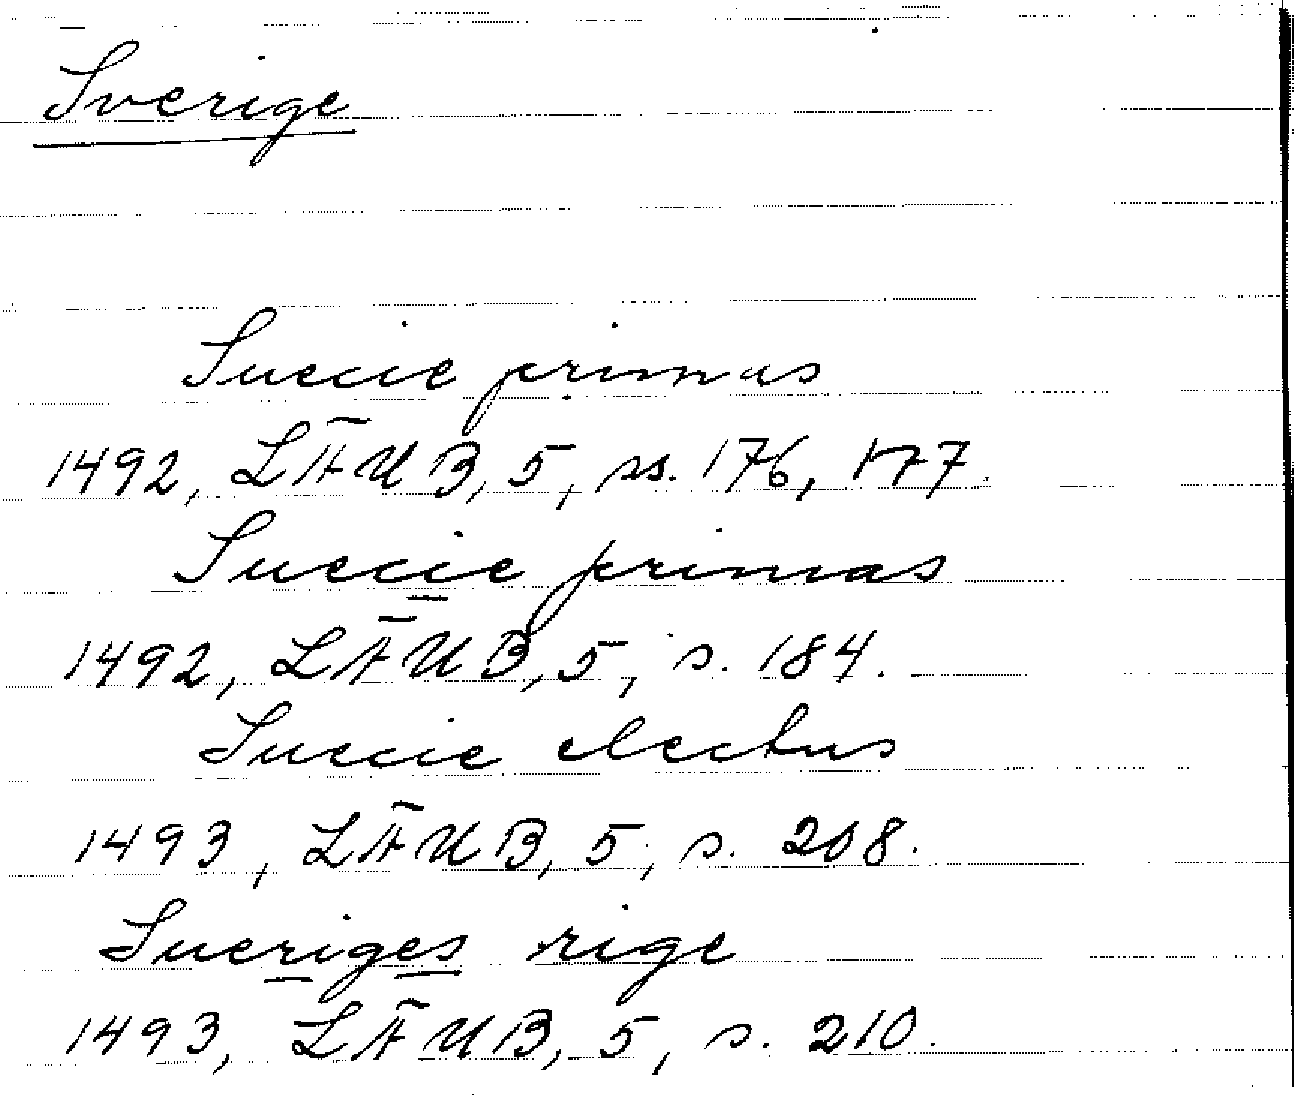 Sverige
Suecie primas
1492, LÄUB, 5, ss. 176, 177.
Suecie primas
1492, LÄUB, 5, s. 184.
Suecie electus
1493, LÄUB, 5, s. 208.
Sueriges rige
1493, LÄUB, 5, s. 210.